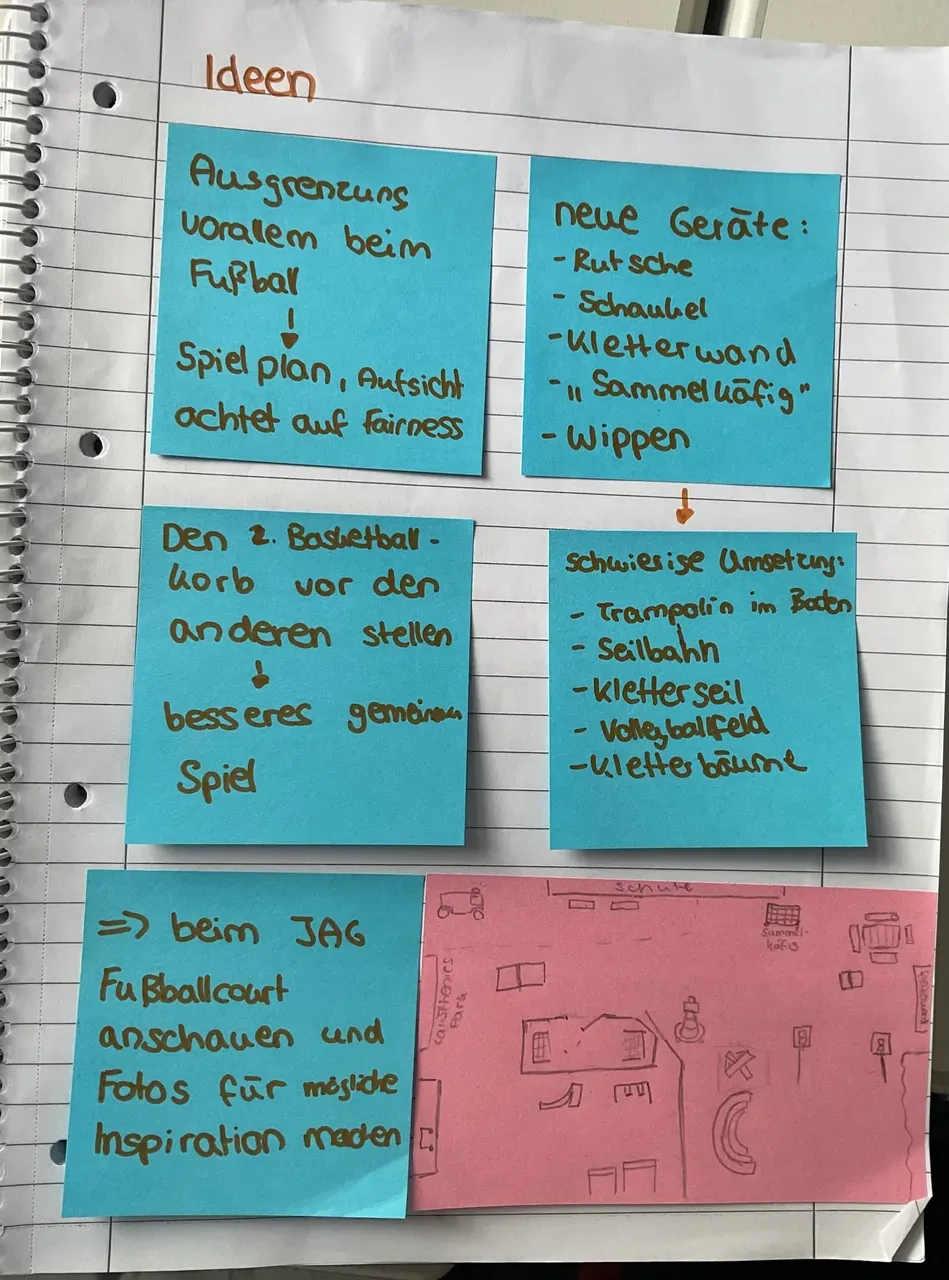 Ideen
Ausgrenzung
vorallem beim
Fußball
↓
Spielplan, Aufsicht
achtet auf Fairness
neue Geräte:
- Rutsche
- Schaukel
- Kletterwand
- „Sammelkäfig"
- Wippen
↓
Den 2. Basketball-
korb vor den
anderen stellen
↓
besseres
Spiel
schwierige Umsetzung:
- Trampolin im Boden
- Seilbahn
- Kletterseil
- Volleyballfeld
- Kletterbäume
=> beim JAG
Fußballcourt
anschauen und
Fotos für mögliche
Inspiration machen
Schule
Sammel-
käfig
Calisthenics
Park